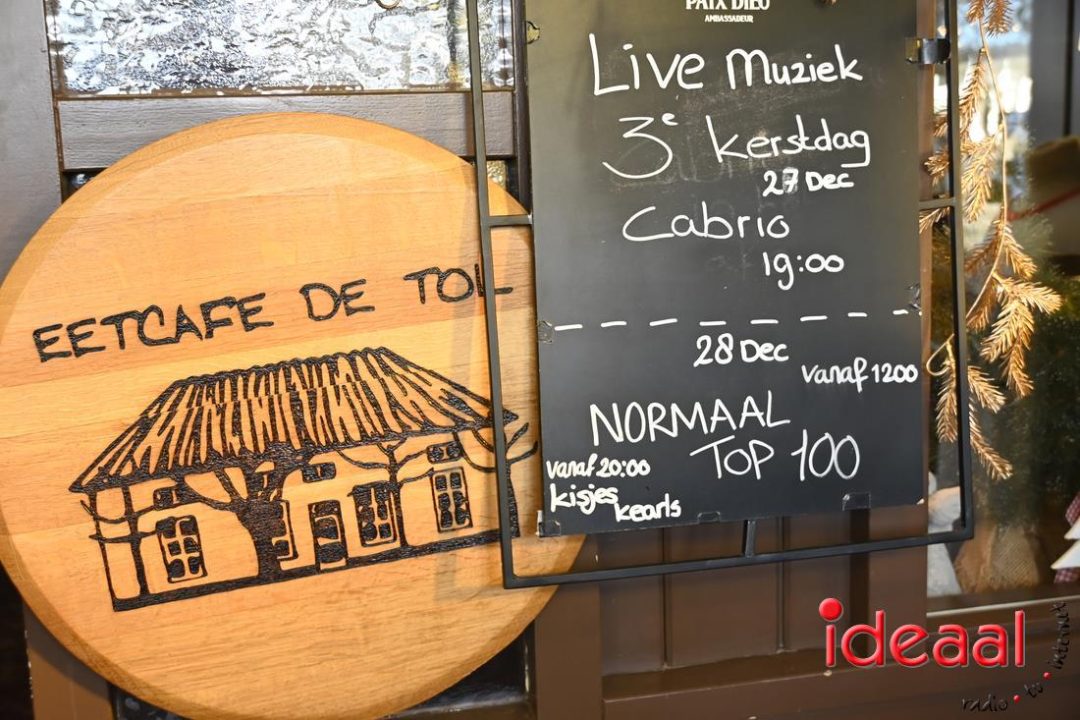 PAIX DIEU
AMBASSADEUR
Live Muziek
3e kerstdag
27 Dec
Cabrio
19:00
28 Dec
vanaf 1200
NORMAAL
TOP 100
vanaf 20:00
kisjes
kearls
EETCAFE DE TOL
ideaal
radio • tv • internet